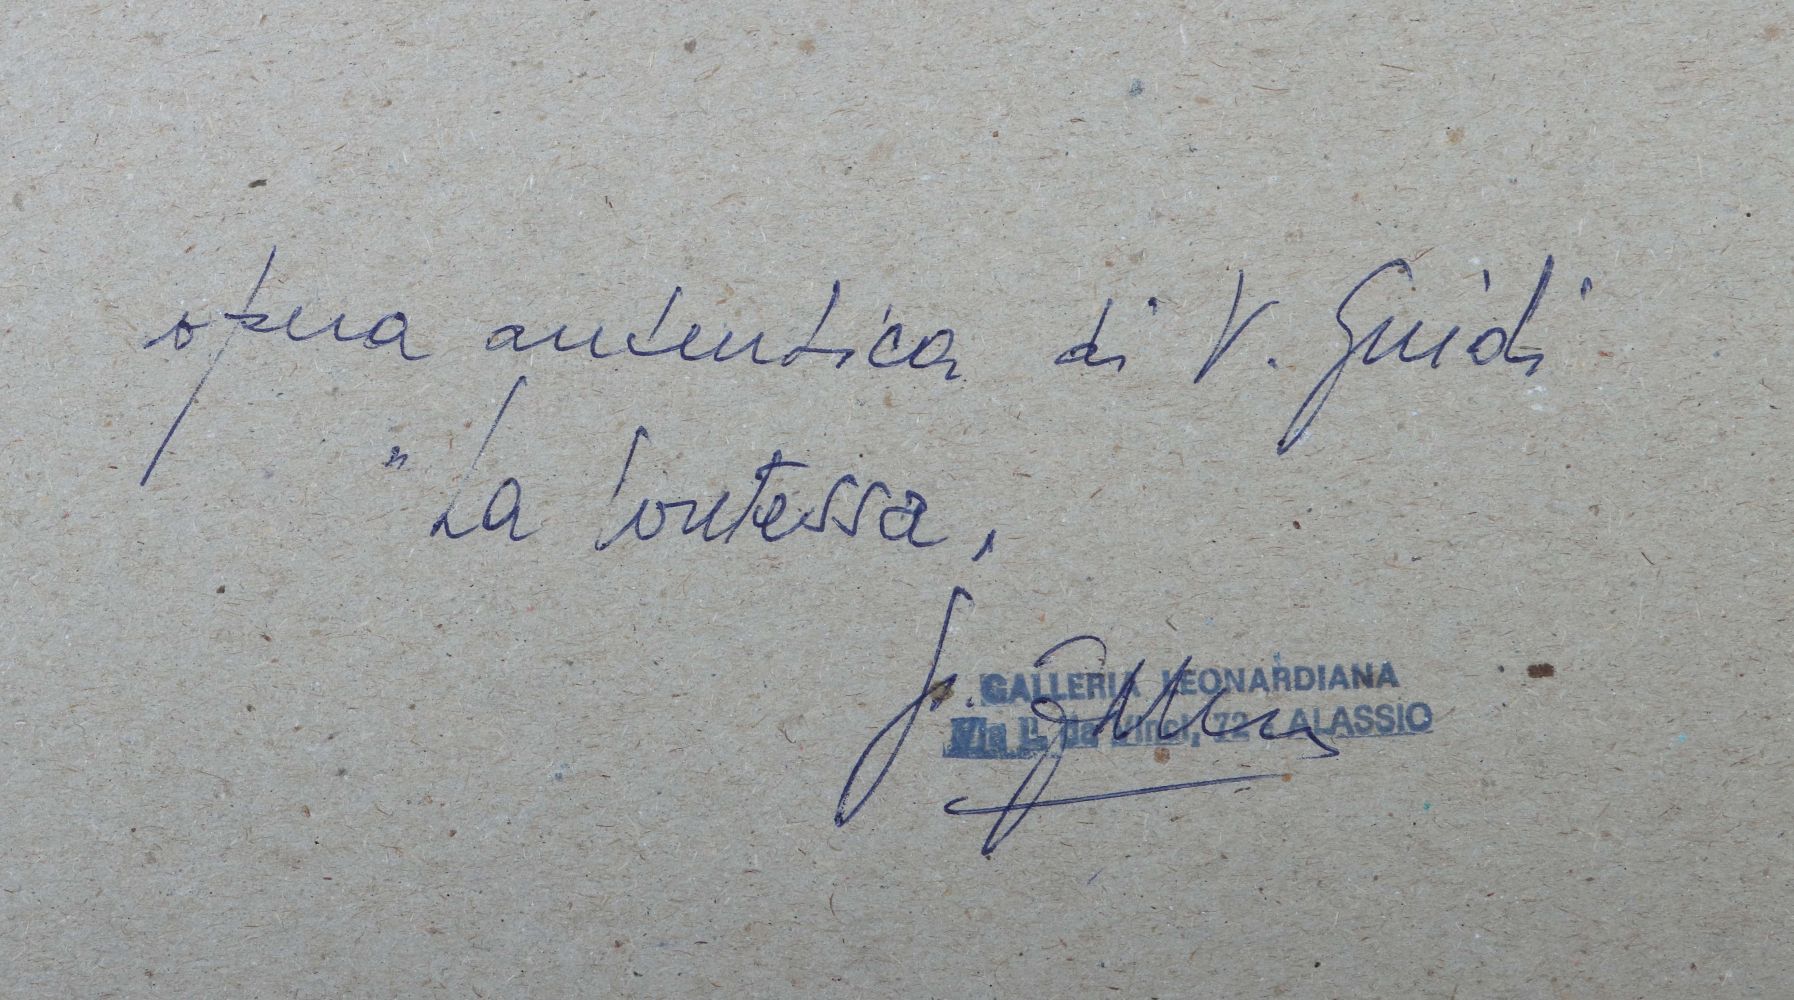 opera autentica di V. Guidi
"La Contessa"
GALLERIA LEONARDIANA
Via L. da Vinci, 72 - ALASSIO